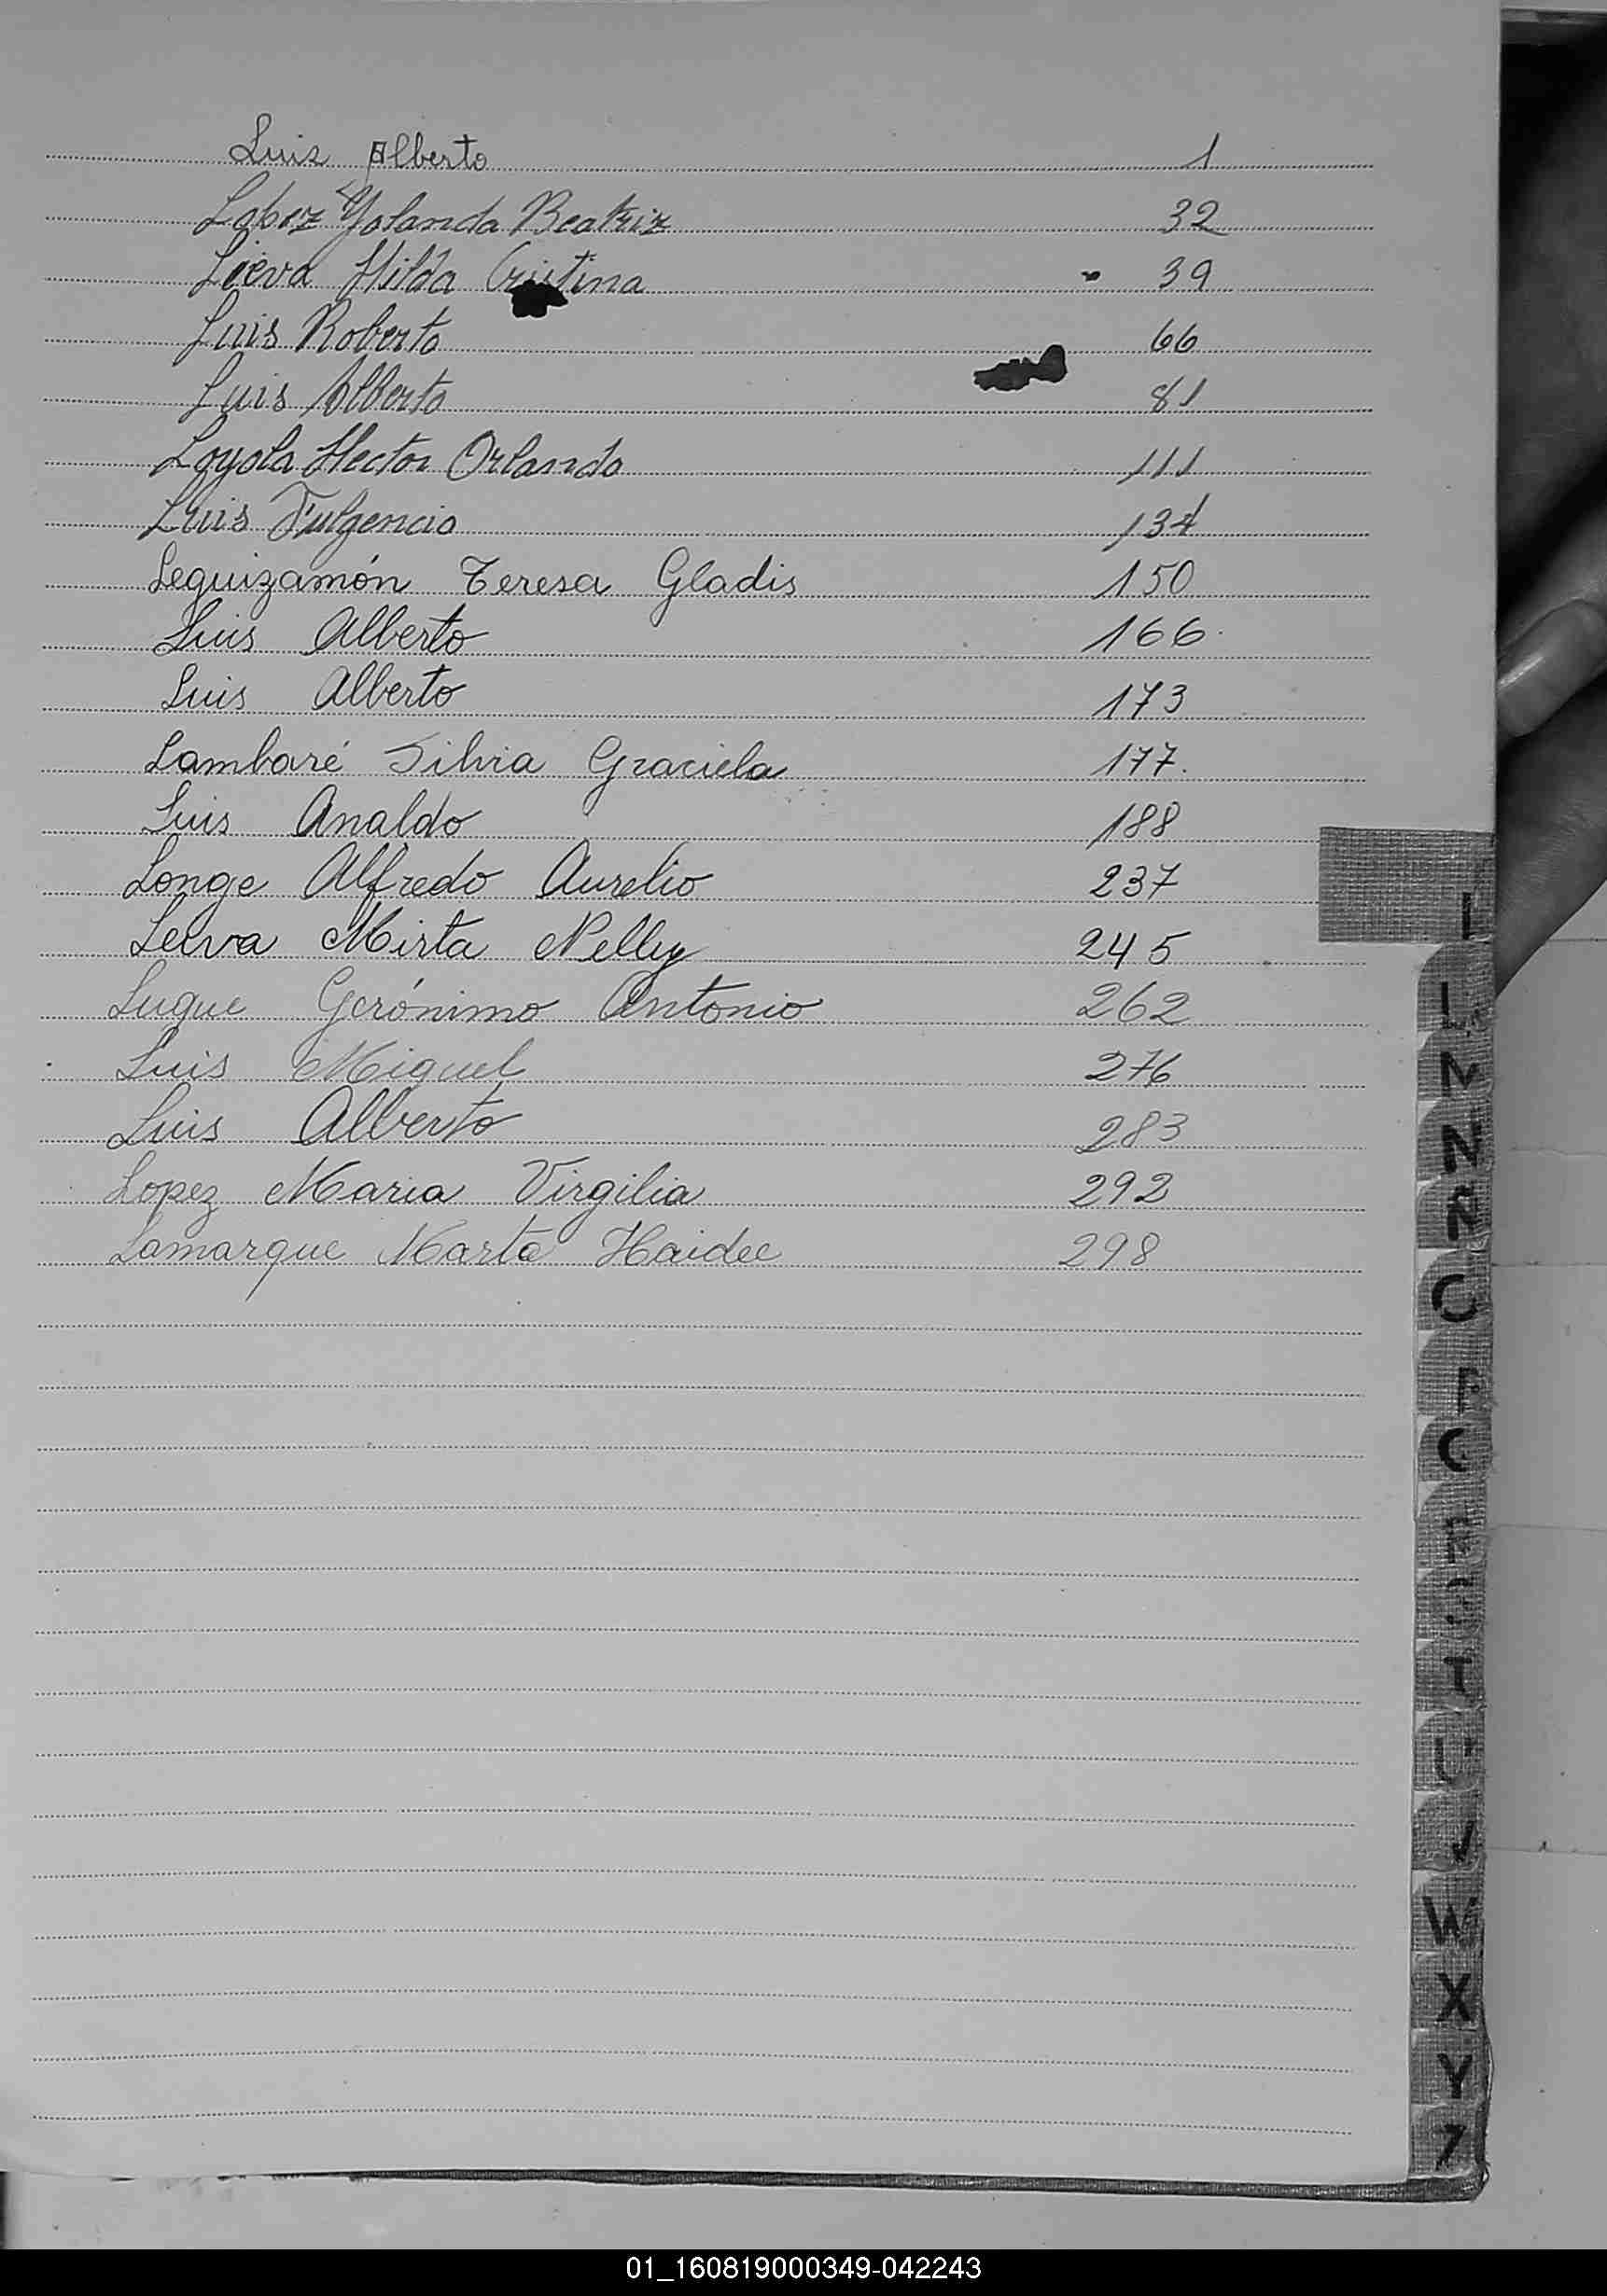 Luis Alberto 1
Lopez Yolanda Beatriz 32
Lieva Hilda Cristina 39
Luis Roberto 66
Luis Alberto 81
Loyola Hector Orlando 111
Luis Fulgencio 134
Leguizamón Teresa Gladis 150
Luis Alberto 166
Luis Alberto 173
Lambaré Silvia Graciela 177
Luis Analdo 188
Longe Alfredo Aurelio 237
Leiva Mirta Nelly 245
Luque Gerónimo Antonio 262
Luis Miguel 276
Luis Alberto 283
Lopez Maria Virgilia 292
Lamarque Marta Haidee 298
L
N
N
C
C
T
U
W
X
Y
Z
01_160819000349-042243